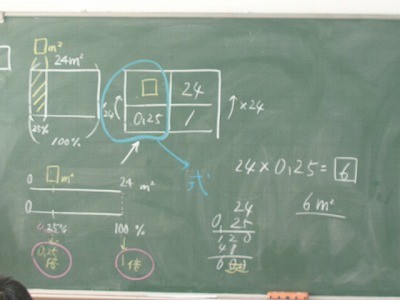 □m²
24m²
25%
100%
□ 24
0.25 1
×24
×24
式
24×0.25=6
6m²
0 □m² 24 m²
0
25% 100%
0.25倍 1倍
24
0.25
120
48
600